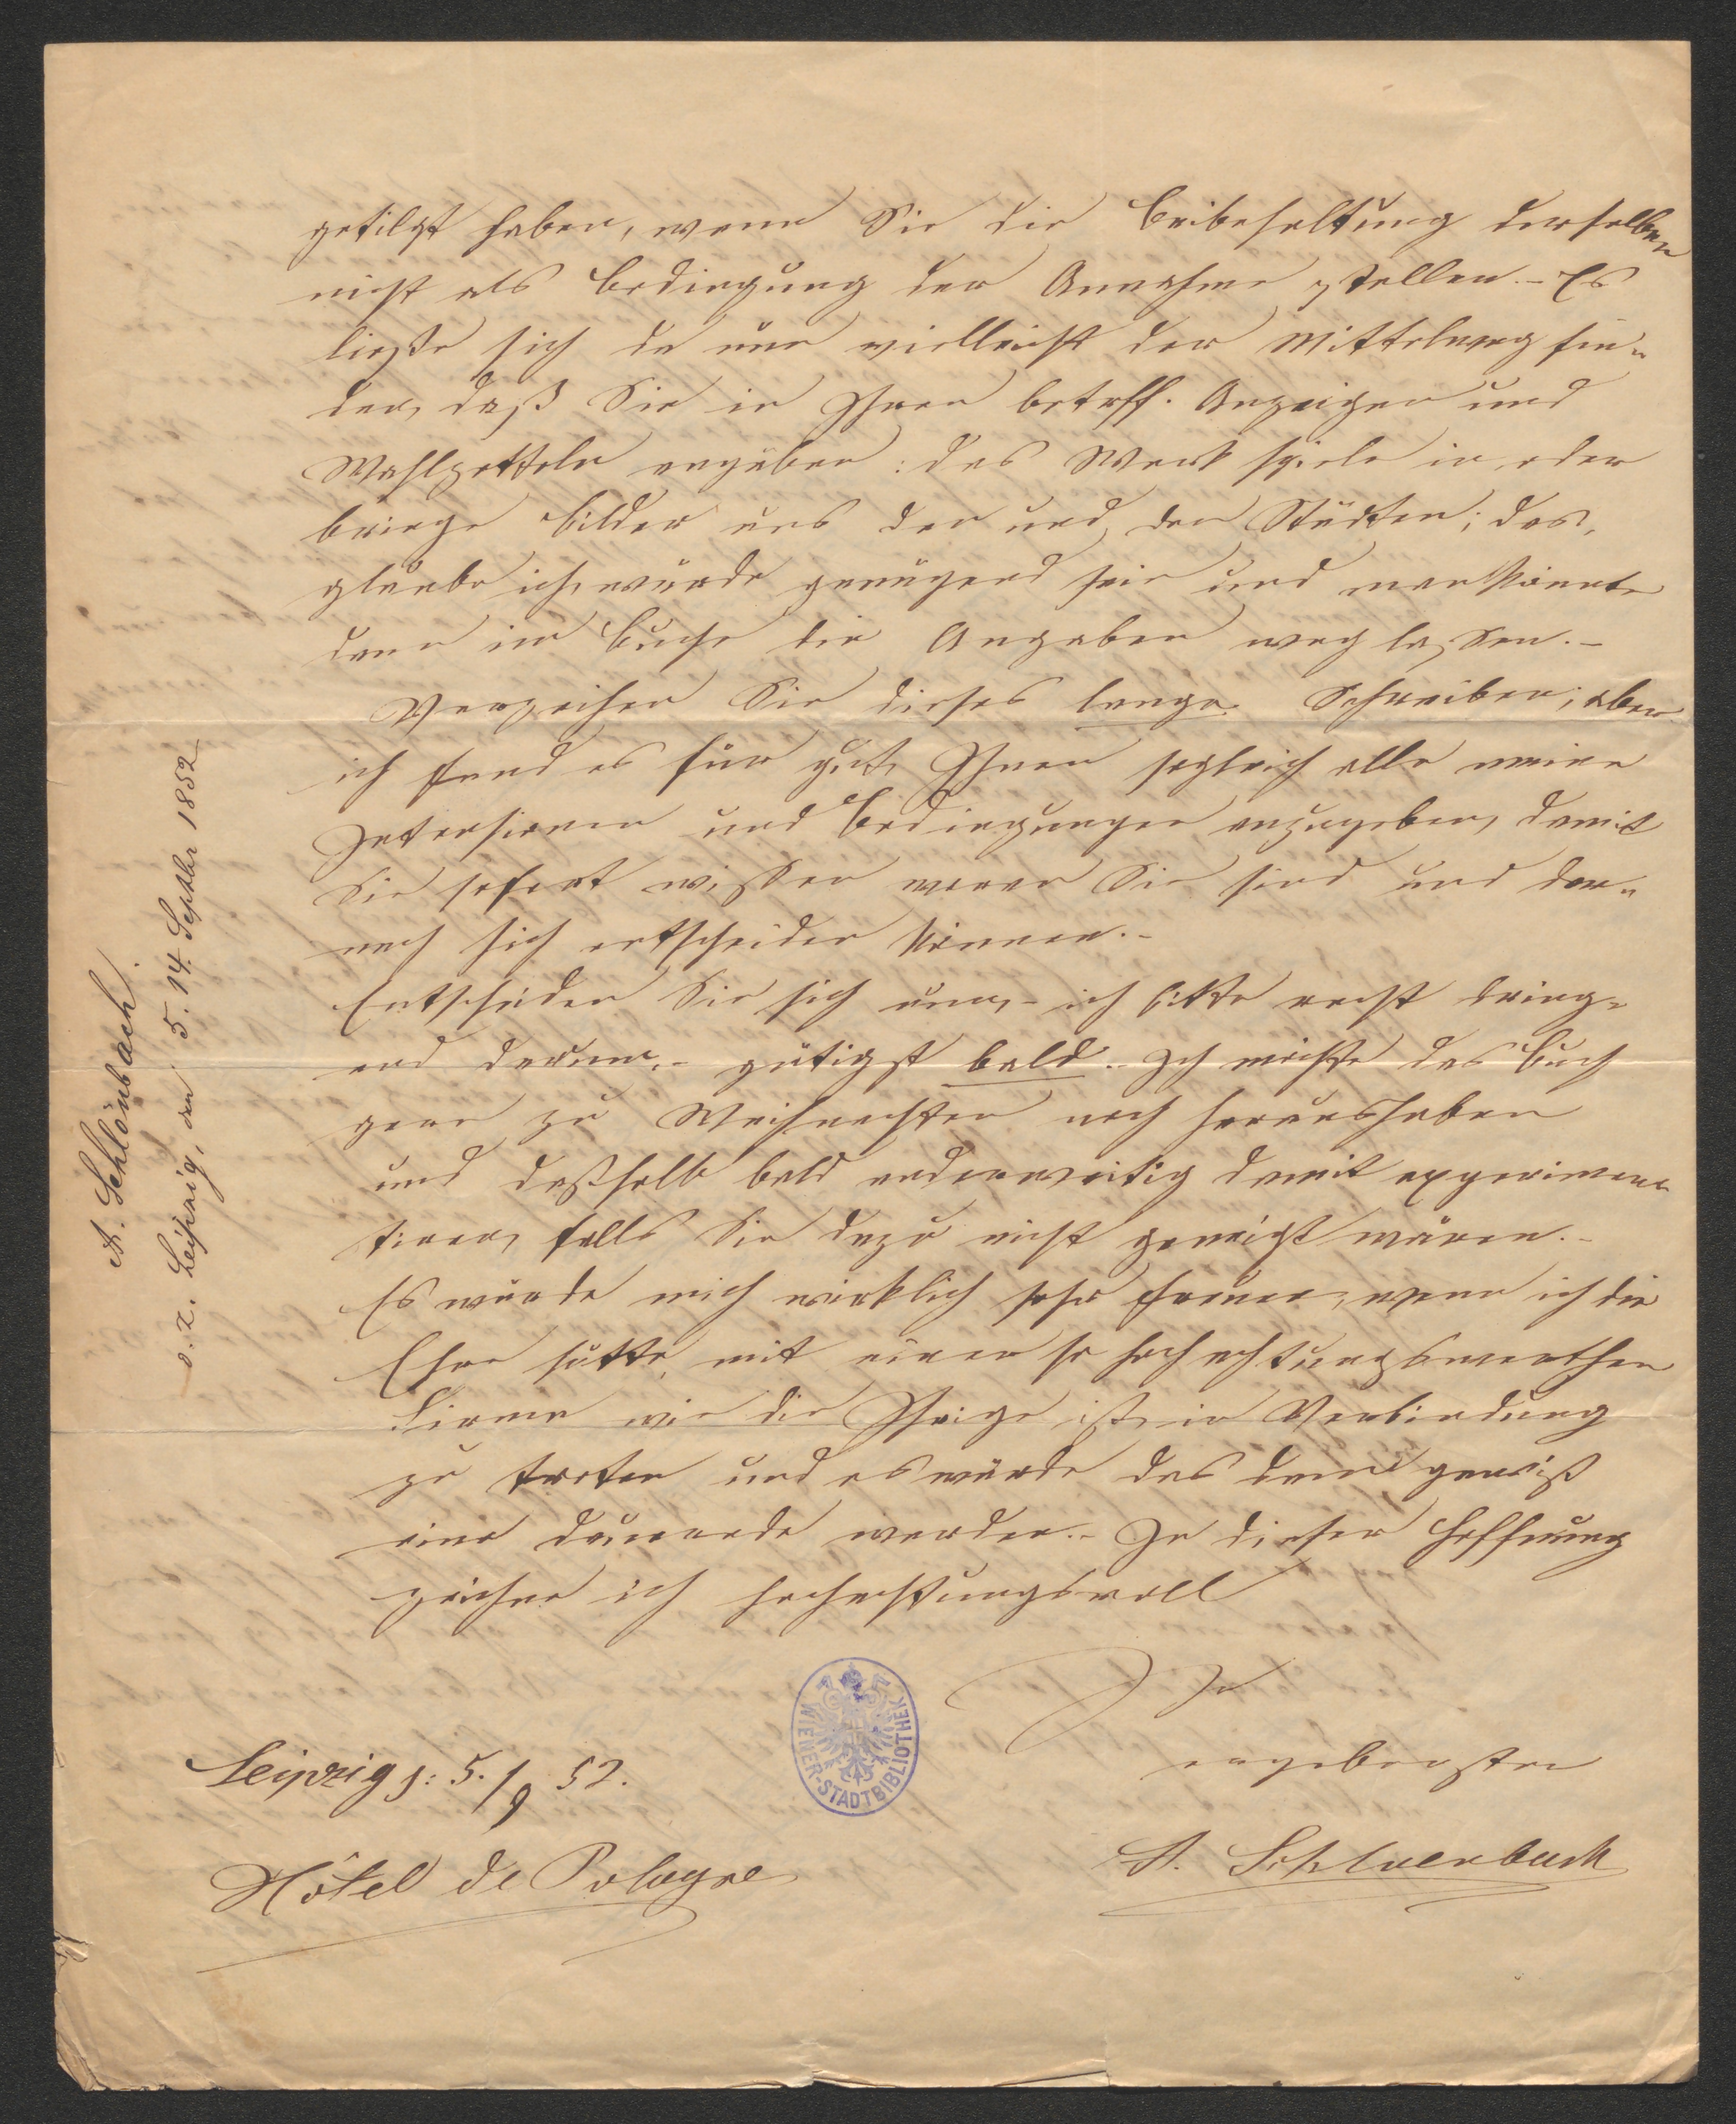 getilgt haben, wenn Sie die Beibehaltung derselben
nicht als Bedingung der Annahme stellen. - Es
ließe sich da nun vielleicht der Mittelweg fin-
den, daß Sie in Ihren betreff. Anzeigen und
Wahlzetteln angäben: das Werk spiele in oder
bringe Bilder aus den und den Städten; das,
glaube ich, würde genügend sein und man könnte
dann im Buche die Angaben weg lassen. -
Verzeihen Sie dieses lange Schreiben; aber
ich fand es für gut, Ihnen sogleich alle meine
Intensionen und Bedingungen anzugeben, damit
Sie sofort wissen woran Sie sind und dar-
nach sich entscheiden können. -
Entscheiden Sie sich nun, - ich bitte recht dring-
end darum, - gütigst bald. Ich möchte das Buch
gern zu Weihnachten noch heraushaben
und deßhalb bald anderweitig damit experimen-
tiren, falls Sie dazu nicht geneigt wären. -
Es würde mich wirklich sehr freuen, wenn ich die
Ehre hätte, mit einer so hochachtungswerthen
Firma wie die Ihrige ist, in Verbindung
zu treten und es würde das dann gewiß
eine dauernde werden. - In dieser Hoffnung
zeichne ich hochachtungsvoll
Ihr
ergebenster
A. Schloenbach
Leipzig, 5./9 52.
Hôtel de Pologne
A. Schlönbach.
d. Z. Leipzig, den 5. 14. Septbr 1852
WIENER-STADTBIBLIOTHEK